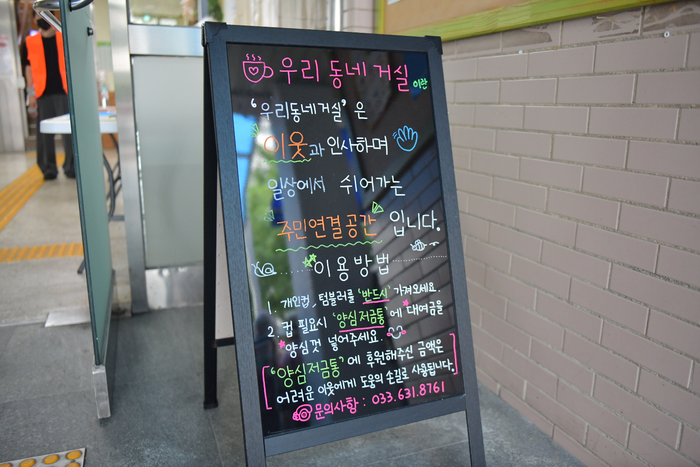 우리 동네 거실 이란
'우리동네거실' 은
이웃과 인사하며
일상에서 쉬어가는
주민연결공간 입니다.
이용방법
1. 개인컵, 텀블러를 '반드시' 가져오세요.
2. 컵 필요시 '양심저금통'에 대여금을
양심껏 넣어주세요
'양심저금통'에 후원해주신 금액은
어려운 이웃에게 도움의 손길로 사용됩니다.
문의사항 : 033.631.8761